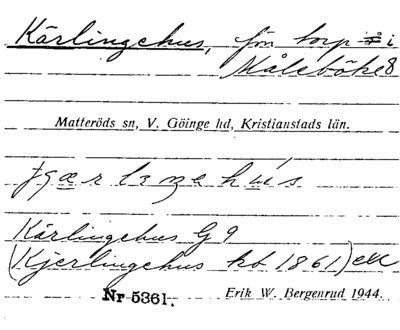 Kärlingehus, förr torp i
Måleböke 8
Matteröds sn, V. Göinge hd, Kristianstads län.
Kärlingehus G 9
(Kjerlingehus kb 1861)
Nr 5361. Erik W. Bergenrud 1944.